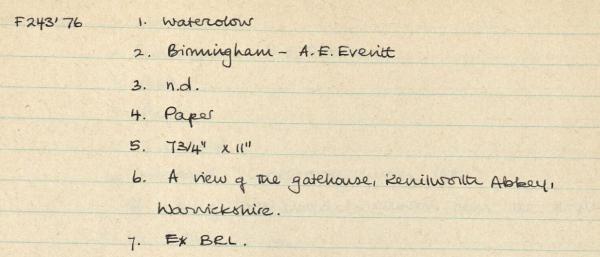 F243'76 1. Watercolour
2. Birmingham - A.E. Everitt
3. n.d.
4. Paper
5. 73/4" x 11"
6. A view of the gatehouse, Kenilworth Abbey,
Warwickshire.
7. Ex BRL.